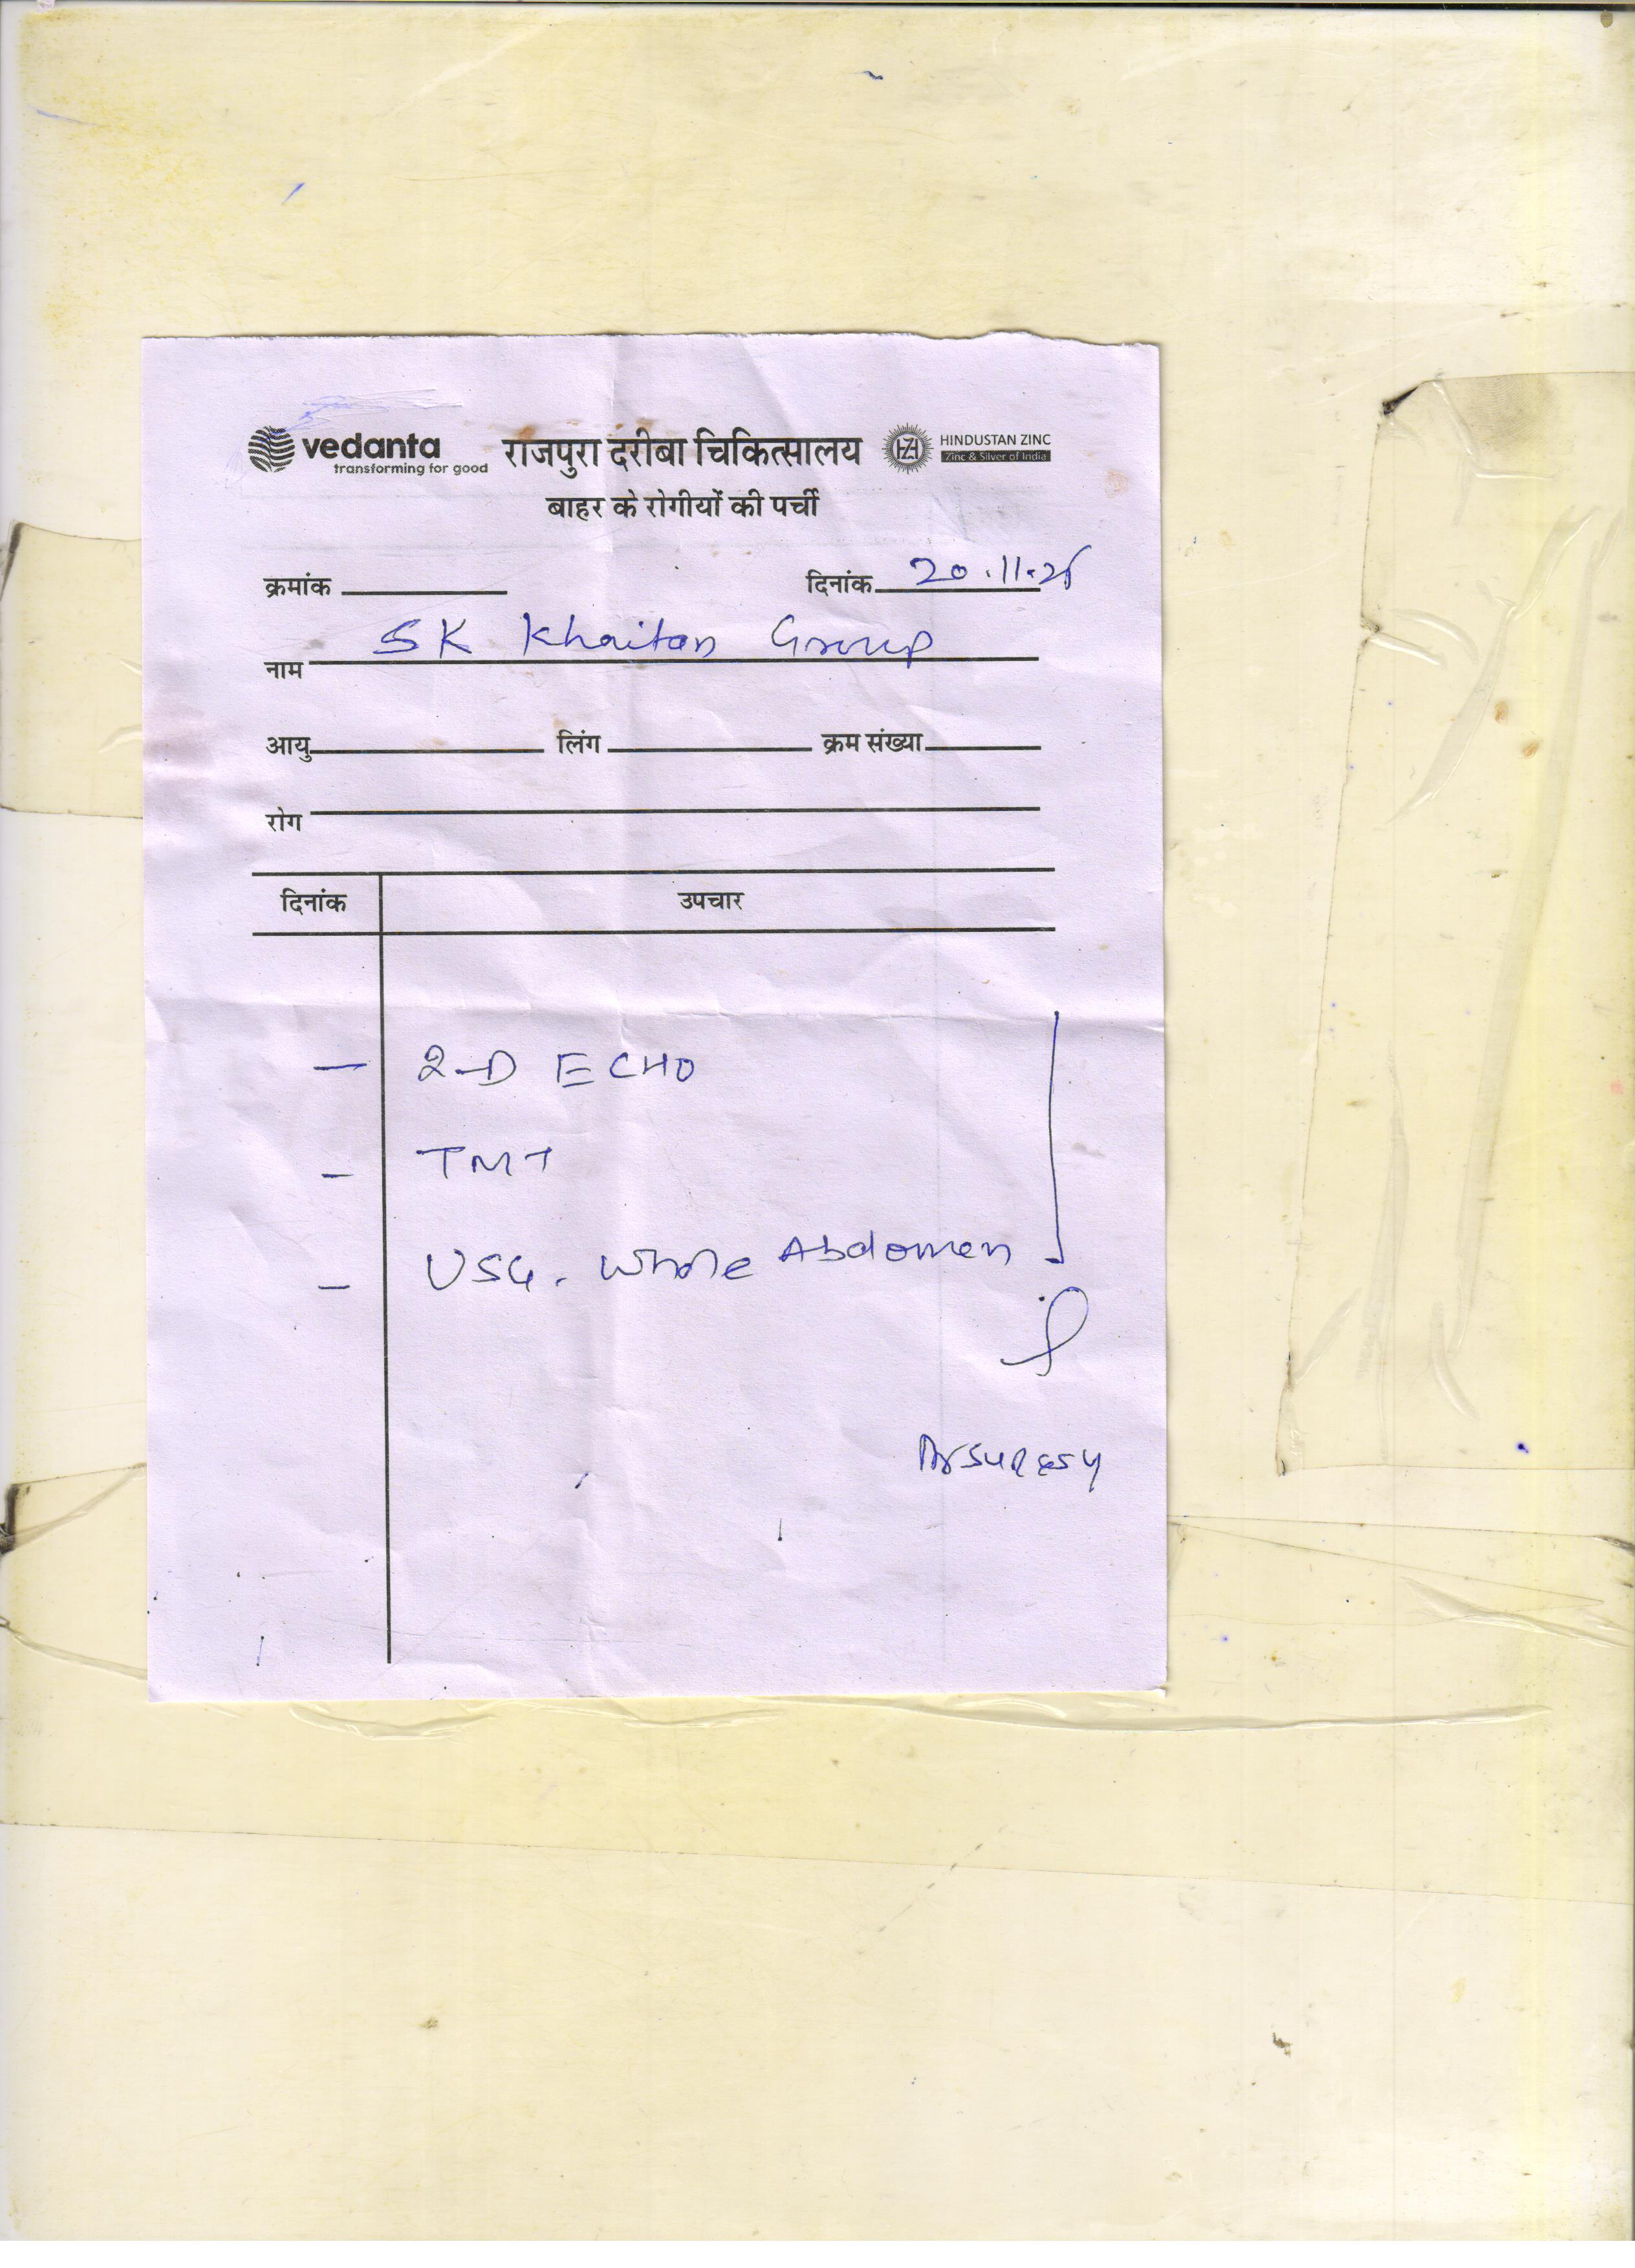 vedanta राजपुरा दरीबा चिकित्सालय HZL HINDUSTAN ZINC
transforming for good Zinc & Silver of India
बाहर के रोगीयों की पर्ची
क्रमांक दिनांक 20.11.25
नाम SK Khaitan Group
आयु लिंग क्रम संख्या
रोग
दिनांक उपचार
– 2-D ECHO
– TMT
– USG. Whole Abdomen
Dr SURESH